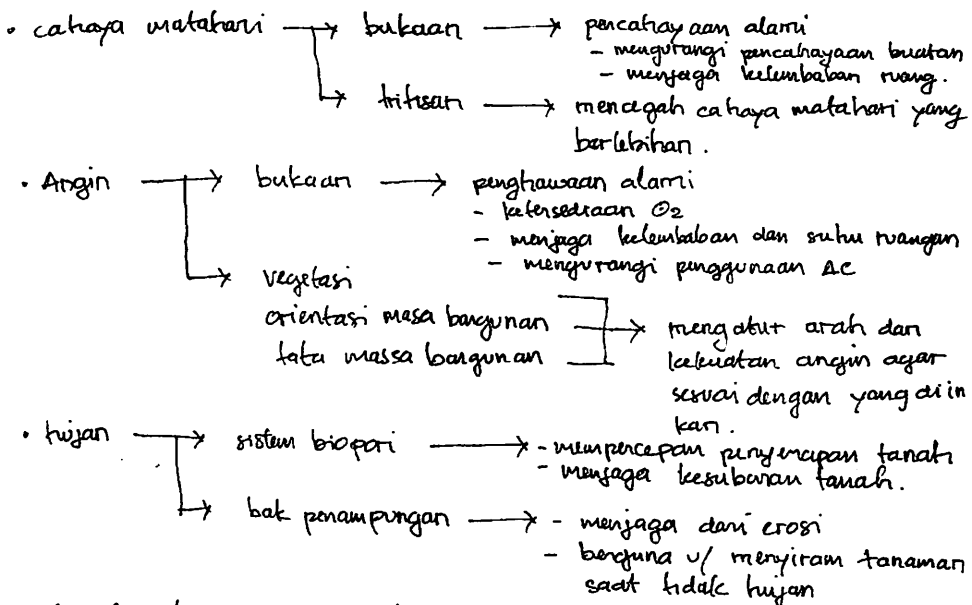 • cahaya matahari → bukaan → pencahayaan alami
- mengurangi pencahayaan buatan
- menjaga kelembaban ruang.
→ tritisan → mencegah cahaya matahari yang
berlebihan.
• Angin → bukaan → penghawaan alami
- ketersediaan O2
- menjaga kelembaban dan suhu ruangan
- mengurangi penggunaan AC
→ vegetasi
orientasi masa bangunan → mengatur arah dan
tata massa bangunan kekuatan angin agar
sesuai dengan yang diin
kan.
• hujan → sistem biopori → - mempercepan penyerapan tanah
- menjaga kesuburan tanah.
→ bak penampungan → - menjaga dari erosi
- berguna u/ menyiram tanaman
saat tidak hujan